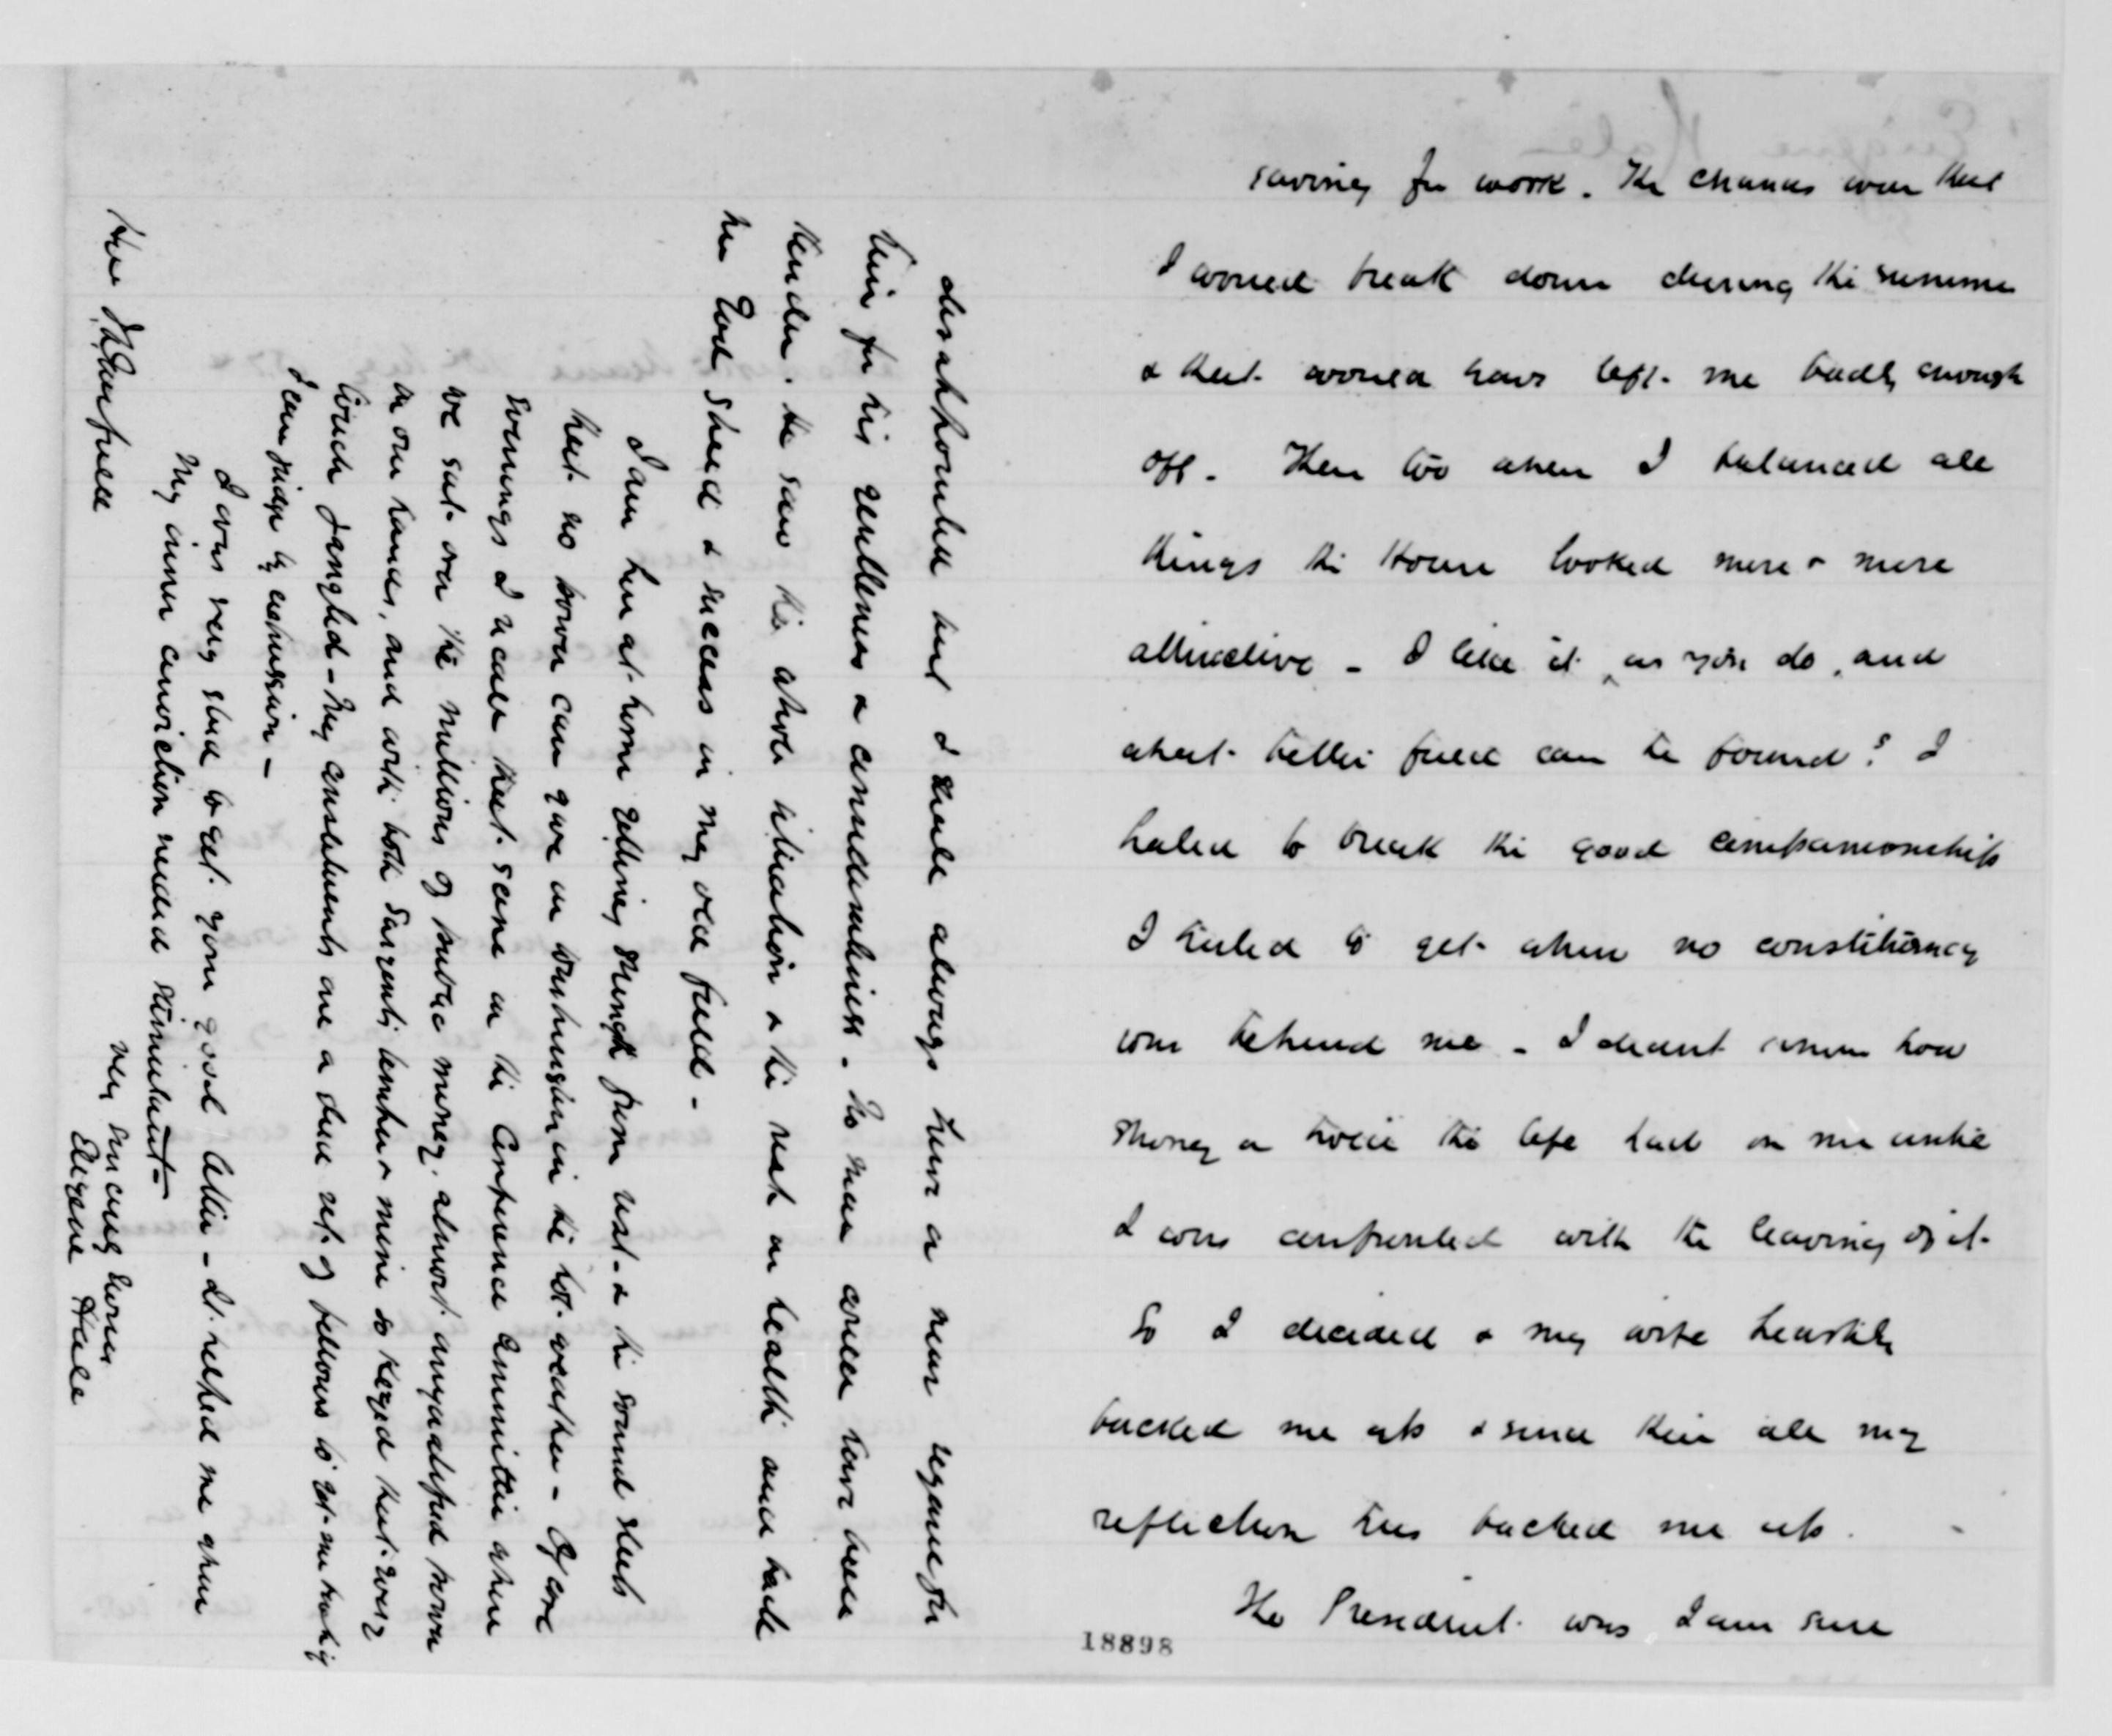 saving for work. The chances were that
I would break down during the summer
& that would have left me badly enough
off. Then too when I balanced all
things the House looked more & more
attractive - I like it, as you do, and
what better field can be found? I
hated to break the good companionship
I hated to get where no constituency
was behind me - I didnt know how
strong a hold the life had on me until
I was confronted with the leaving of it.
So I decided & my wife heartily
backed me up & since then all my
reflection has backed me up.
The President was I am sure
18898
disappointed but I shall always have a near regard for
him for his gentleness & considerateness. No man could have been
kinder. He saw the whole situation & the risk in health and bade
me God Speed & success in my old field -
I am here at home getting strength from rest & the sound sleeps
that no power can give in Washington in the hot weather - Of all
evenings I recall that scene in the Conference Committee when
we sat over the millions of public money, almost unqualified power
in our hands, and with both Sargents temper & mine so keyed that every
touch jangled - My constituents are a dear set of fellows to get me back if
I can judge by expression -
I was very glad to get your good letter - It helped me when
my inner conviction needed stimulant -
Very sincerely yours
Eugene Hale
Hon J A Garfield